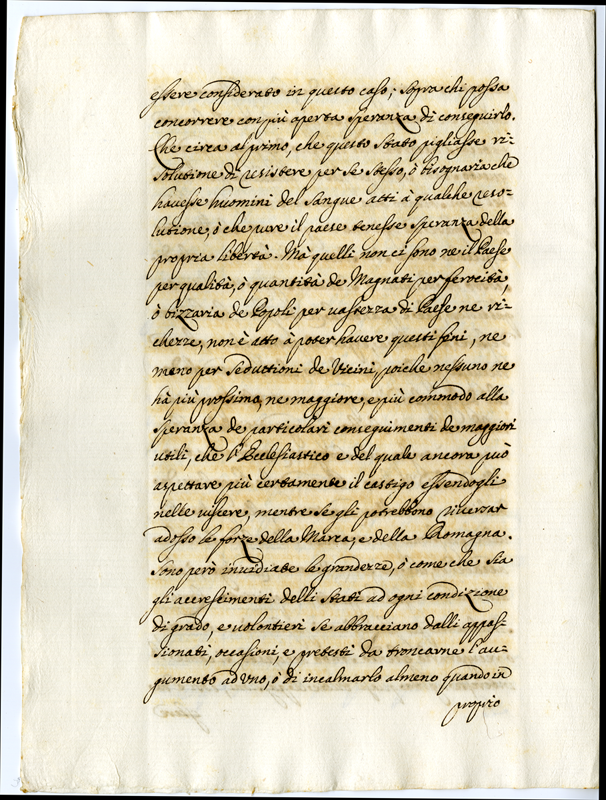 essere considerato in questo caso; sopra chi possa
concorrere con più aperta speranza di conseguirlo.
Che circa al primo, che questo stato pigliasse ri-
solutione di resistere per se stesso, ò bisognaria che
havesse huomini del sangue atti à qualche reso-
lutione, ò che pure il paese tenesse speranza della
propria libertà. Mà quelli non ci sono ne il Paese
per qualità, ò quantità de Magnati per ferocità,
ò bizzaria de Popoli per vastezza di Paese ne ri-
chezze, non è atto à poter havere questi fini, ne
meno per seduttioni de Vicini, poiche nessuno ne
hà più prossimo, ne maggiore, e più commodo alla
speranza de particolari conseguimenti de maggiori
utili, che l'Ecclesiastico e del quale ancora può
aspettare più certamente il castigo essendogli
nelle viscere, mentre se gli potrebbono riversar
adosso le forze della Marca, e della Romagna.
Sono però invidiate le grandezze, ò come che sia
gli accrescimenti delli stati ad ogni condizione
di grado, e volontieri se abbracciano dalli appas-
sionati, occasioni, e pretesti da troncarne l'au-
gumento ad uno, ò di incalmarlo almeno quando in
proprio